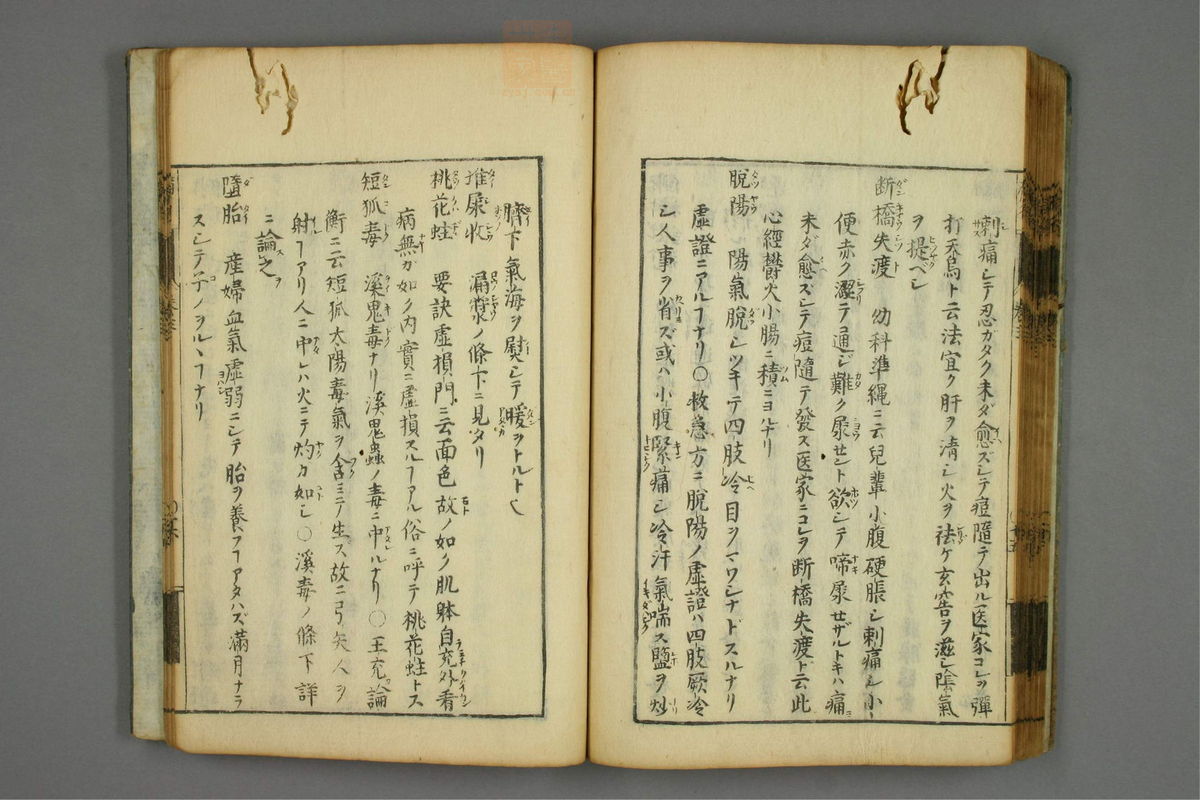 刺痛シテ忍ガタク未ダ愈ズシテ痘隨テ出ル医家コレヲ彈
打天烏ト云法宜ク肝ヲ清シ火ヲ祛ケ玄府ヲ滋シ陰氣
ヲ提ベシ
断橋失渡 幼科準縄ニ云兒輩小腹硬脹シ刺痛シ小
便赤ク澀テ通ジ難ク尿セント欲シテ啼尿セザルトキハ痛
未ダ愈ズシテ痘隨テ發ス医家ニコレヲ断橋失渡ト云此
心經欝火小腸ニ積ニヨルナリ
脱陽 陽氣脱シツキテ四肢冷目ヲマワシナドスルナリ
虚證ニアルヿナリ○救急方ニ脱陽ノ虚證ハ四肢厥冷
シ人事ヲ省ズ或ハ小腹緊痛シ冷汗氣喘ス鹽ヲ炒
臍下氣海ヲ熨シテ暖ヲトルト也
堆尿收 漏ノ條下ニ見タリ
桃花蛀 要訣虚損門ニ云面色故ノ如ク肌躰自充外看
病無ガ如ク内實ニ虚損スルヿアル俗ニ呼テ桃花蛀トス
短狐毒 溪鬼毒ナリ溪鬼蟲ノ毒ニ中ルナリ○王充論
衡ニ云短狐太陽毒氣ヲ含ミテ生ス故ニ弓矢人ヲ
射ヿアリ人ニ中レハ火ニテ灼カ如シ○溪毒ノ條下詳
ニ論之
墮胎 産婦血氣虚弱ニシテ胎ヲ養フヿアタハズ滿月ナラ
ズシテ子ノヲルヽヿナリ